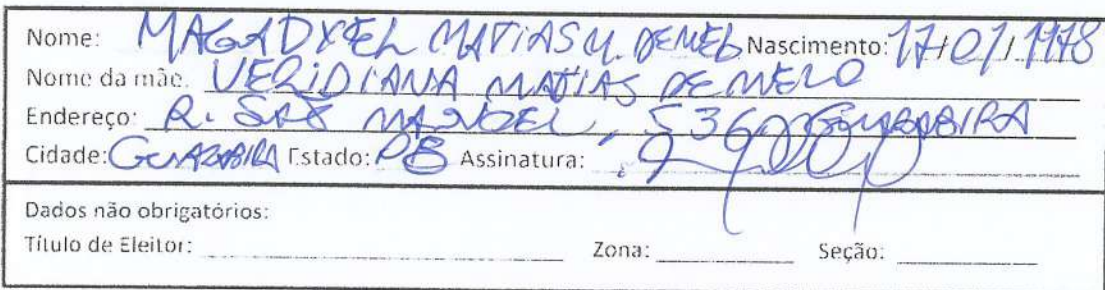 Nome: MAGADXEL MATIAS M. DE MELO Nascimento: 17/01/1978
Nome da mãe. VERIDIANA MATIAS DE MELO
Endereço: R. SÃO MANOEL, 536 GUARABIRA
Cidade: GUARABIRA Estado: PB Assinatura:
Dados não obrigatórios:
Título de Eleitor: Zona: Seção: